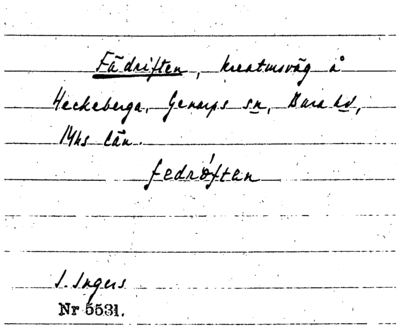 Fädriften, kreatursväg å
Heckeberga, Genarps sn, Bara hd,
Mhs län.
fedrǿften
I. Ingers
Nr 5531.